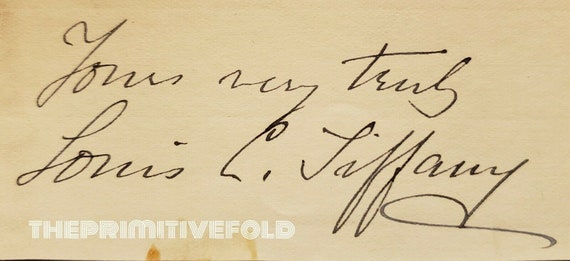 Yours very truly
Louis C. Tiffany
THEPRIMITIVEFOLD